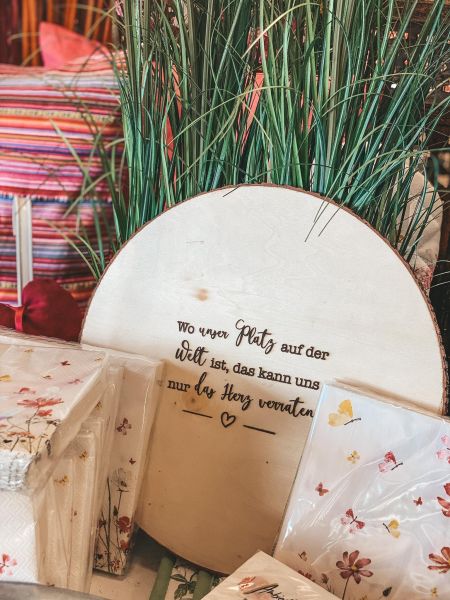 Wo unser Platz auf der
Welt ist, das kann uns
nur das Herz verraten